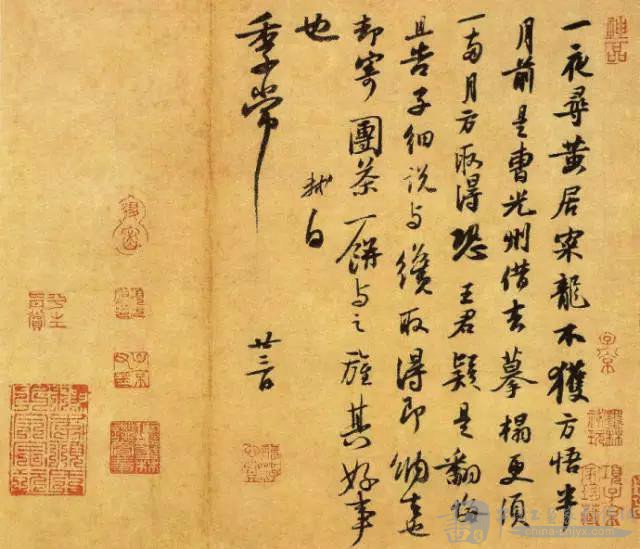 一夜尋黃居寀龍不獲方悟半
月前是曹光州借去摹榻更須
一兩月方取得恐王君疑是翻悔
且告子細說與纔取得即納去也
却寄團茶一餅與之旌其好事
也
軾白
季常
廿三日
神品
子京
china-shjyx.com